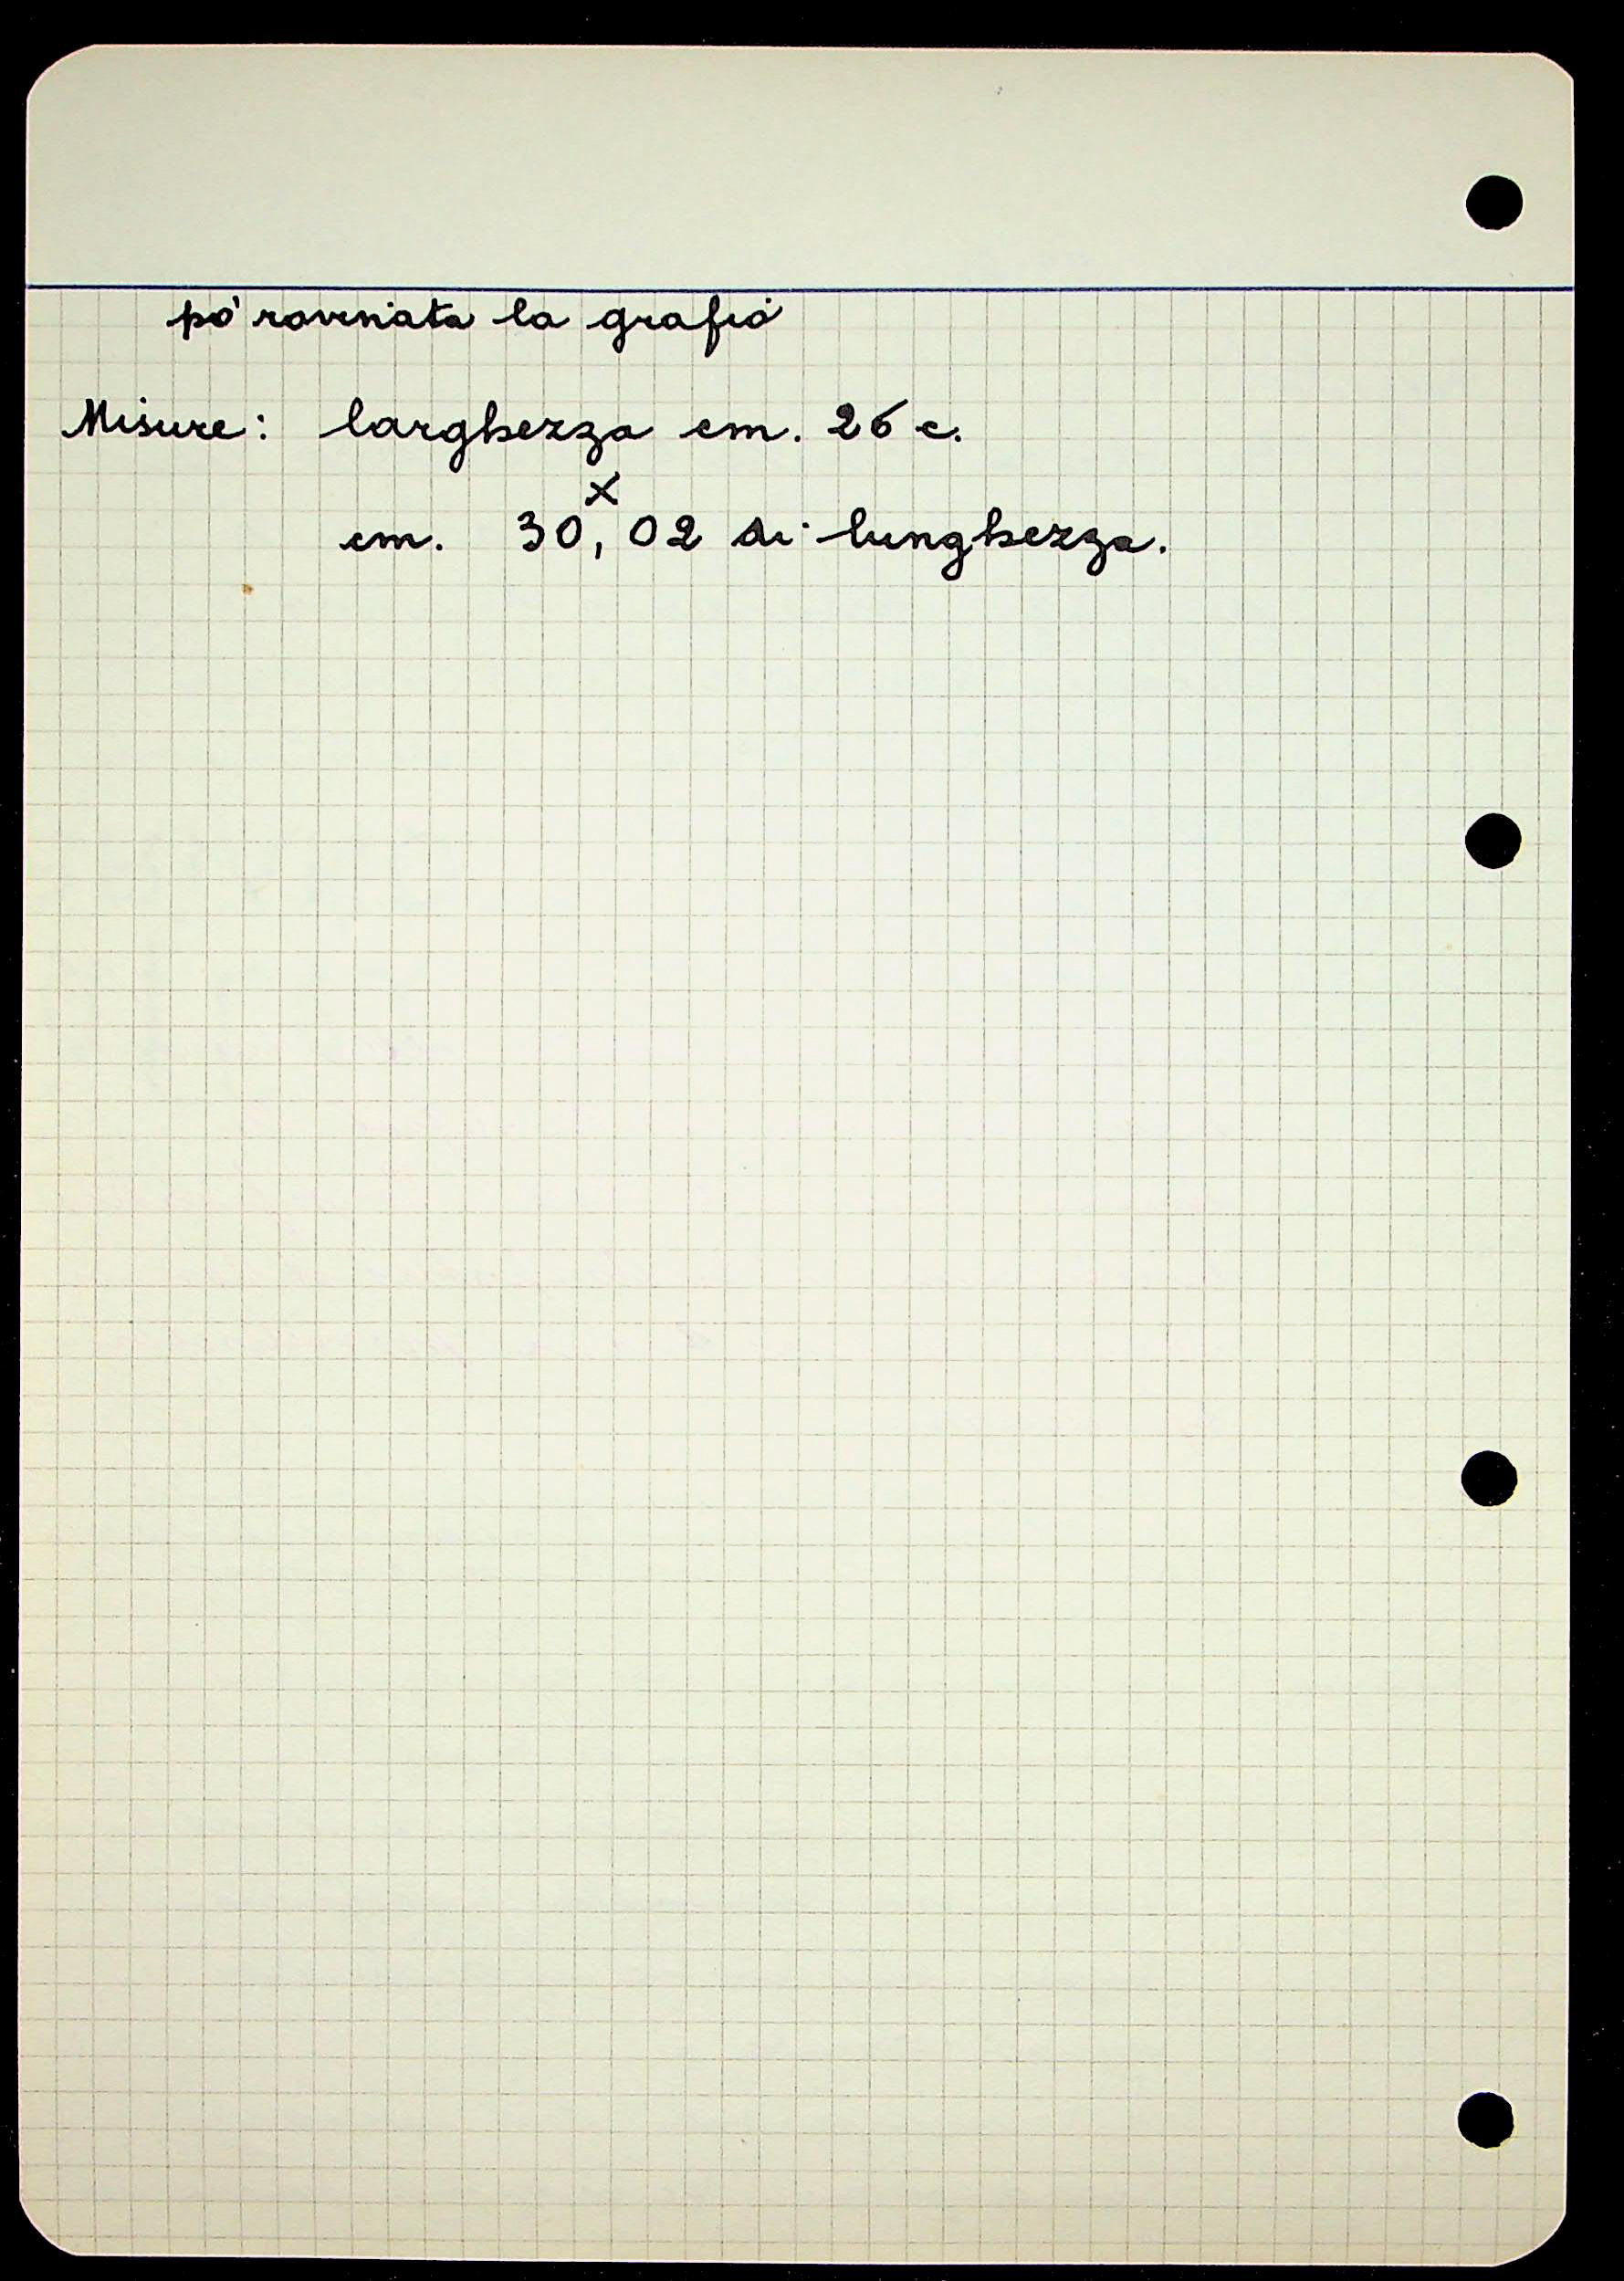 pò rovinata la grafia
Misure: larghezza cm. 26 c.
x
cm. 30,02 di lunghezza.